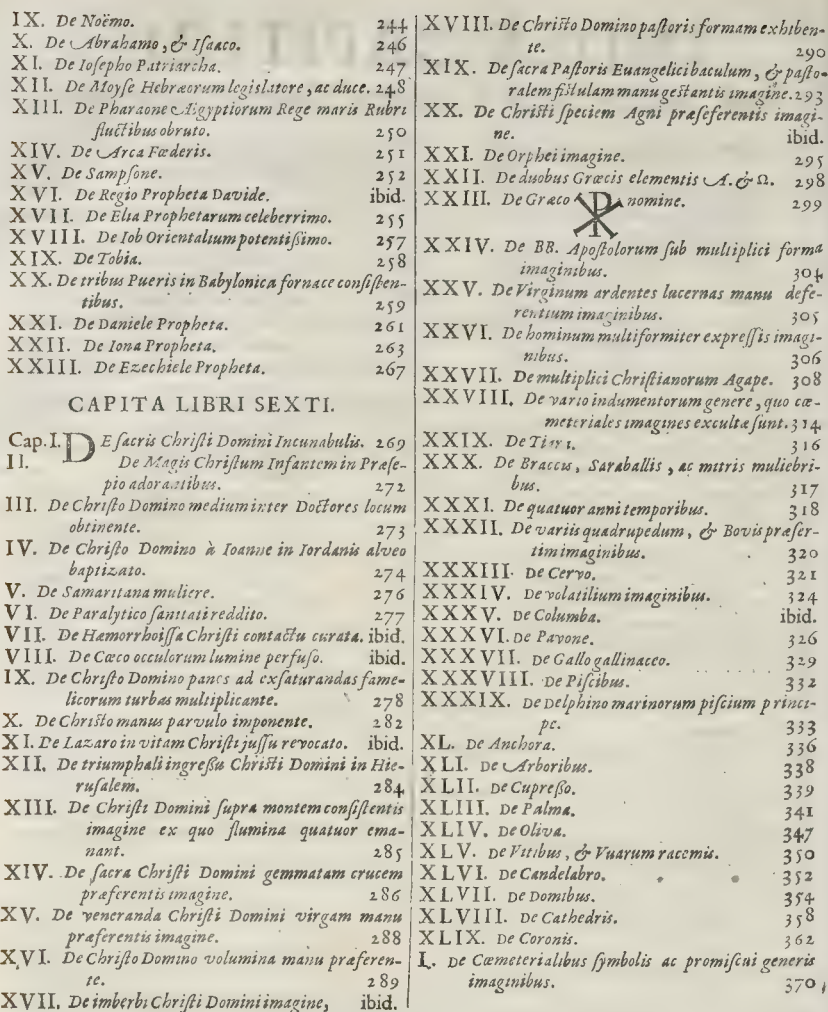 IX. De Noëmo. 244
X. De Abrahamo, & Isaaco. 246
XI. De Iosepho Patriarcha. 247
XII. De Moyse Hebræorum legislatore, ac duce. 248
XIII. De Pharaone Ægyptiorum Rege maris Rubri
fluctibus obruto. 250
XIV. De Arca Fœderis. 251
XV. De Sampsone. 252
XVI. De Regio Propheta Davide. ibid.
XVII. De Elia Prophetarum celeberrimo. 255
XVIII. De Iob Orientalium potentißimo. 257
XIX. De Tobia. 258
XX. De tribus Pueris in Babylonica fornace consisten-
tibus. 259
XXI. De Daniele Propheta. 261
XXII. De Iona Propheta. 263
XXIII. De Ezechiele Propheta. 267
CAPITA LIBRI SEXTI.
Cap. I. DE sacris Christi Domini Incunabulis. 269
II. De Magis Christum Infantem in Præse-
pio adorantibus. 272
III. De Christo Domino medium inter Doctores locum
obtinente. 273
IV. De Christo Domino à Ioanne in Iordanis alveo
baptizato. 274
V. De Samaritana muliere. 276
VI. De Paralytico sanitati reddito. 277
VII. De Hæmorrhoissa Christi contactu curata. ibid.
VIII. De Cæco occulorum lumine perfuso. ibid.
IX. De Christo Domino panes ad exsaturandas fame-
licorum turbas multiplicante. 278
X. De Christo manus parvulo imponente. 282
XI. De Lazaro in vitam Christi jussu revocato. ibid.
XII. De triumphali ingreßu Christi Domini in Hie-
rusalem. 284
XIII. De Christi Domini supra montem consistentis
imagine ex quo flumina quatuor ema-
nant. 285
XIV. De sacra Christi Domini gemmatam crucem
præferentis imagine. 286
XV. De veneranda Christi Domini virgam manu
præferentis imagine. 288
XVI. De Christo Domino volumina manu præferen-
te. 289
XVII. De imberbi Christi Domini imagine, ibid.
XVIII. De Christo Domino pastoris formam exhiben-
te. 290
XIX. De sacra Pastoris Euangelici baculum, & pasto-
ralem fistulam manu gestantis imagine. 293
XX. De Christi speciem Agni præseferentis imagi-
ne. ibid.
XXI. De Orphei imagine. 295
XXII. De duobus Græcis elementis A. & Ω. 298
XXIII. De Græco ☧ nomine. 299
XXIV. De BB. Apostolorum sub multiplici forma
imaginibus. 304
XXV. De Virginum ardentes lucernas manu defe-
rentium imaginibus. 305
XXVI. De hominum multiformiter expressis imagi-
nibus. 306
XXVII. De multiplici Christianorum Agape. 308
XXVIII. De vario indumentorum genere, quo cœ-
meteriales imagines excultæ sunt. 314
XXIX. De Tiari. 316
XXX. De Braccis, Saraballis, ac mitris muliebri-
bus. 317
XXXI. De quatuor anni temporibus. 318
XXXII. De variis quadrupedum, & Bovis præser-
tim imaginibus. 320
XXXIII. De Cervo. 321
XXXIV. De volatilium imaginibus. 324
XXXV. De Columba. ibid.
XXXVI. De Pavone. 326
XXXVII. De Gallo gallinaceo. 329
XXXVIII. De Piscibus. 332
XXXIX. De Delphino marinorum piscium princi-
pe. 333
XL. De Anchora. 336
XLI. De Arboribus. 338
XLII. De Cupreßo. 339
XLIII. De Palma. 341
XLIV. De Oliva. 347
XLV. De Vitibus, & Vuarum racemis. 350
XLVI. De Candelabro. 352
XLVII. De Domibus. 354
XLVIII. De Cathedris. 358
XLIX. De Coronis. 362
L. De Cœmeterialibus symbolis ac promiscui generis
imaginibus. 370